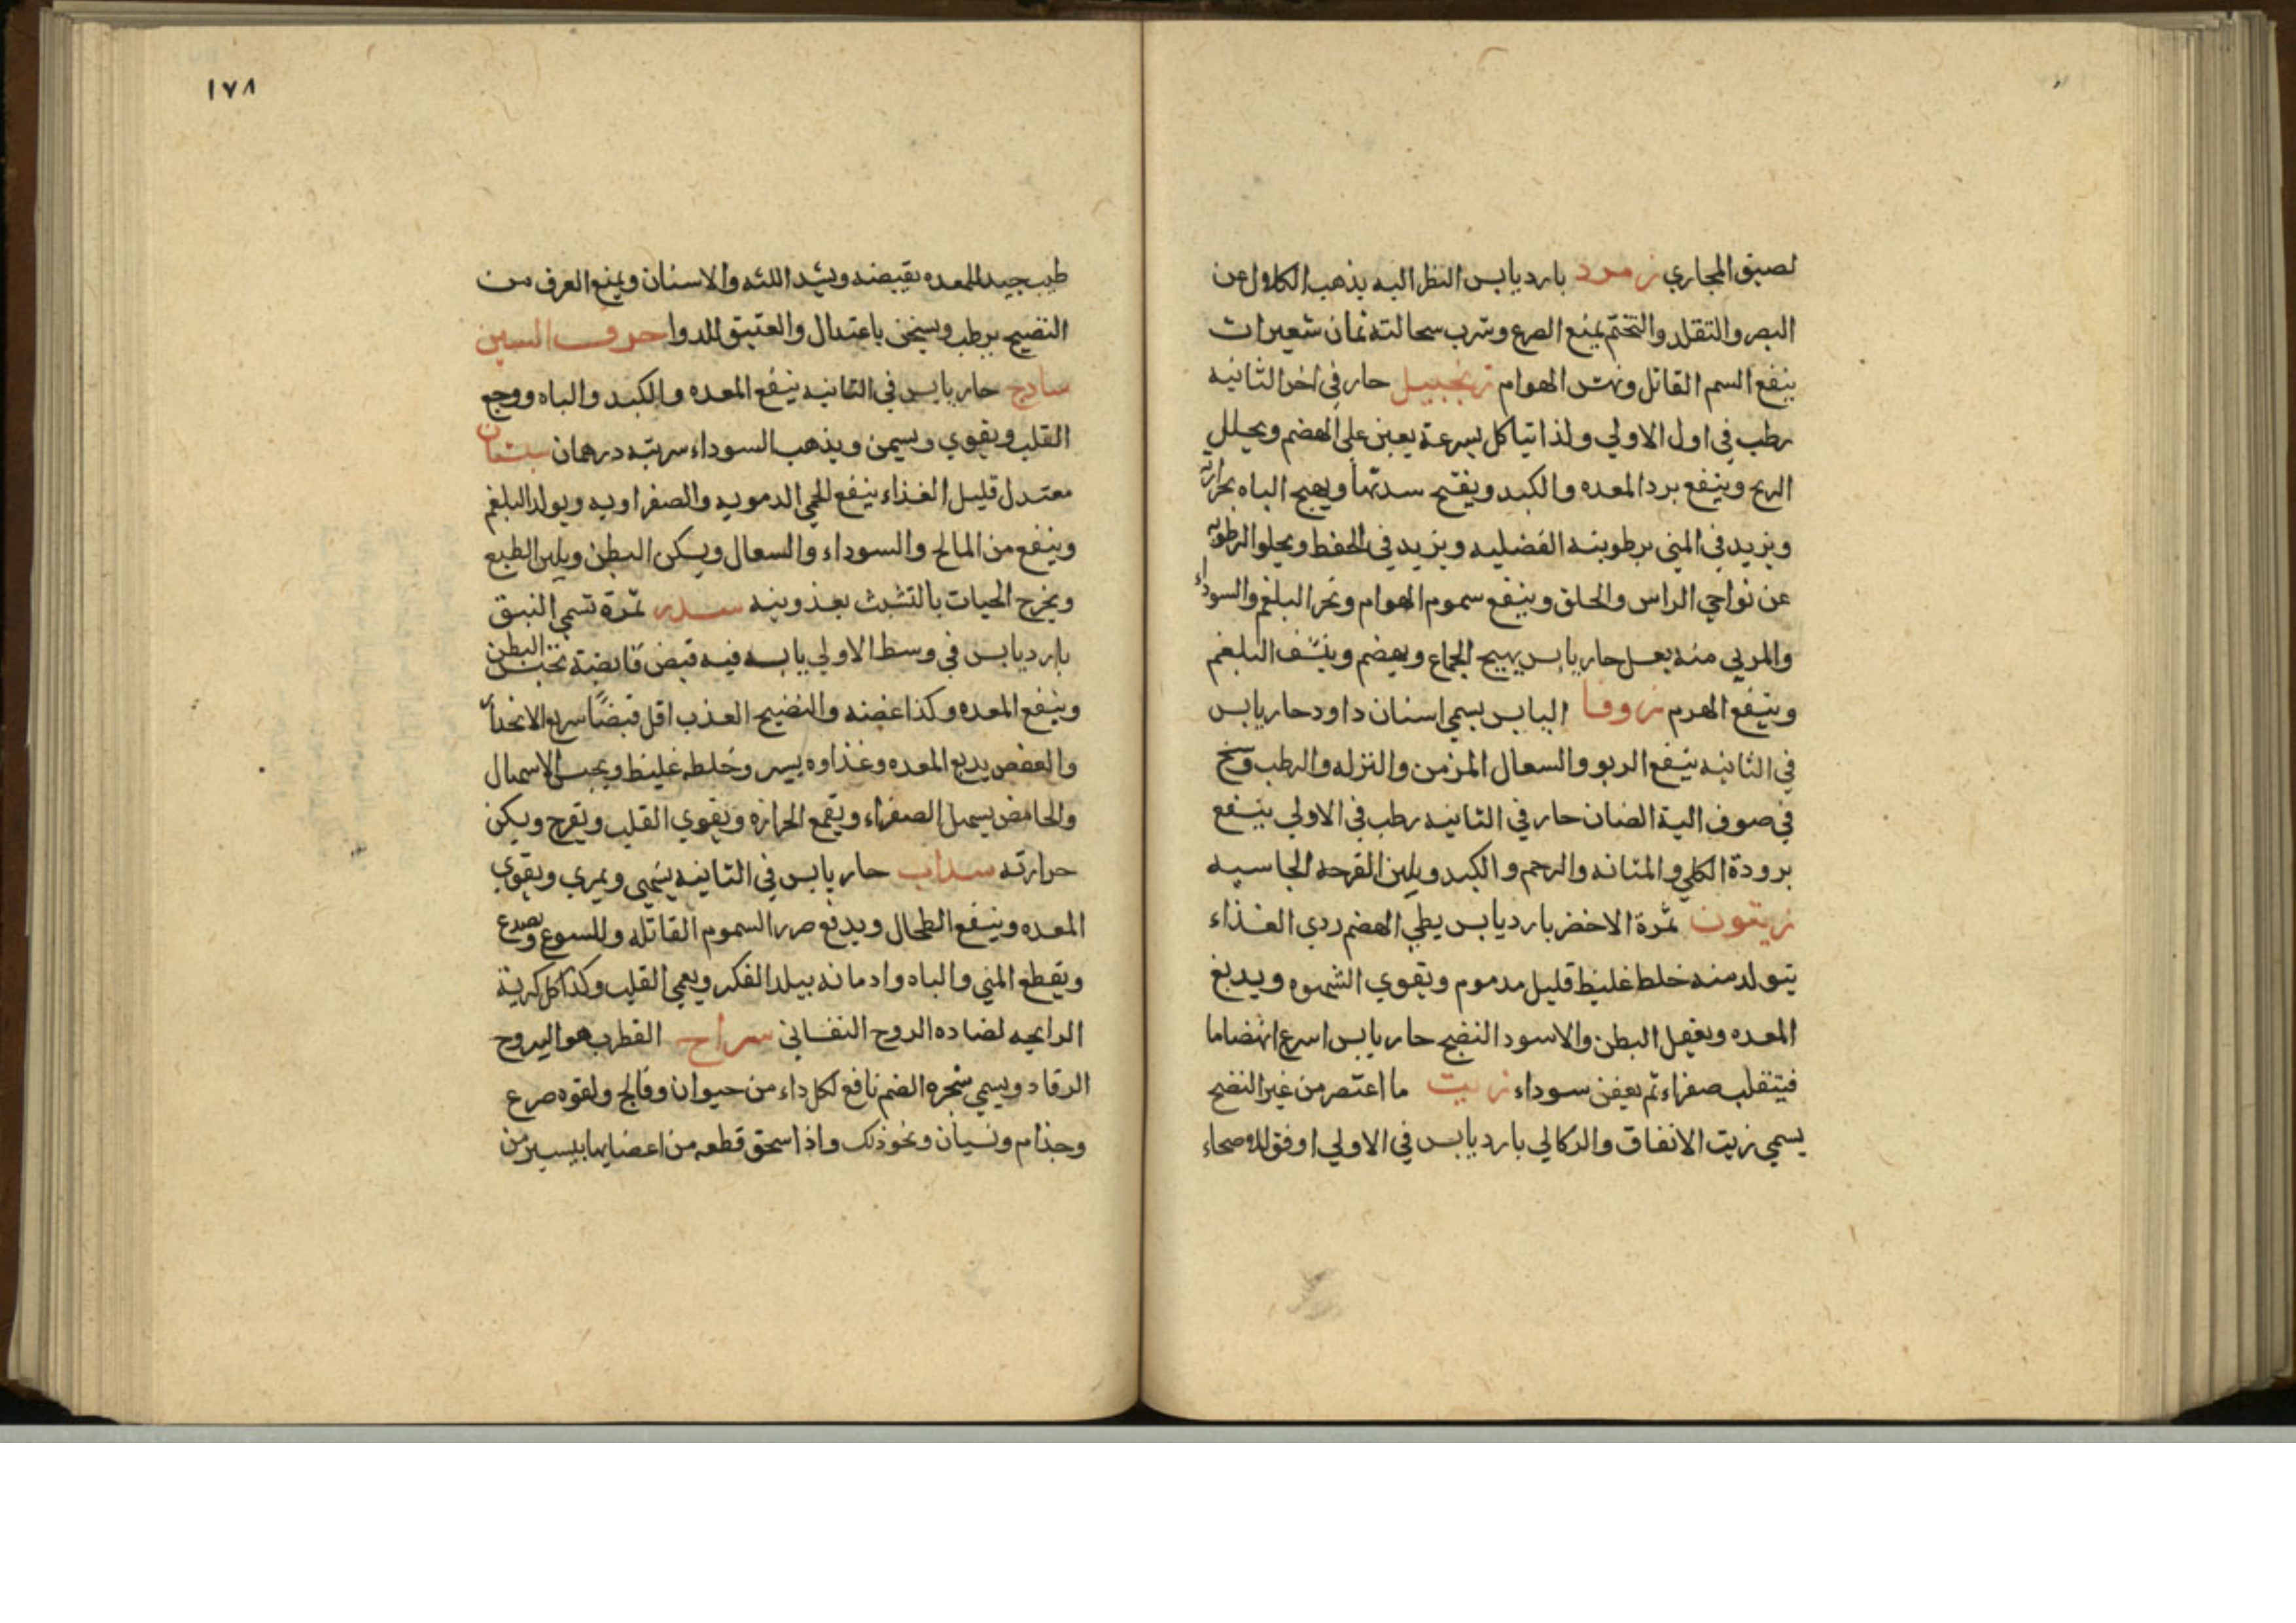 لضيق المجاري زمرد بارد يابس النظر اليه يذهب الكلال عن
البصر والتقلد والتختم يمنع الصرع وشرب سحالته ثمان شعيرات
ينفع السم القاتل ونهش الهوام زنجبيل حار في اخر الثانيه
رطب في اول الاولي ولذا تياكل بسرعة يعين علي الهضم ويحلل
الريح وينفع برد المعده والكبد ويفتح سدتها ويهيج الباه بحرارته
ويزيد في المني برطوبته الفضليه ويزيد في الحفظ ويجلوا الرطوبه
عن نواحي الراس والحلق وينفع سموم الهوام ونخر البلغم والسوداء
والمربي منه بعسل حار يابس يهيج الجماع ويهضم وينشف البلغم
وينفع الهرم زوفا اليابس يسمي اسنان داود حار يابس
في الثانيه ينفع الربو والسعال المزمن والنزله والرطب وسخ
في صوف الية الضان حار في الثانيه رطب في الاولي ينفع
برودة الكلي والمثانه والرحم والكبد ويلين القرحه الجاسيه
زيتون ثمرة الاخضر بارد يابس يطي الهضم ردي الغذاء
يتولد منه خلط غليظ قليل مدموم ويقوي الشهوه ويدبغ
المعده ويعقل البطن والاسود النضيج حار يابس اسرع انهضاما
فيتقلب صفراء ثم يعفن سوداء زيت ما اعتصر من غير النضج
يسمي زيت الانفاق والركالي بارد يابس في الاولي اوفق للاصحاء
١٧٨
طيب جيد للمعده بقبضه ويشد اللثه والاسنان ويمنع العرق من
النضيج يرطب ويسخن باعتدال والعتيق للدوا حرف السين
سادج حار يابس في الثانيه ينفع المعده والكبد والباه ووجع
القلب ويقوي ويسمن ويذهب السوداء سربته درهمان سبستان
معتدل قليل الغذاء ينفع للحمي الدمويه والصفراويه ويولد البلغم
وينفع من المالح والسوداء والسعال ويسكن البطن ويلين الطبع
ويخرج الحيات بالتشبث بعذوبته سدر ثمرة تسمي النبق
بارد يابس في وسط الاولي يابسه فيه قبض قابضة تحبس البطن
وينفع المعده وكذا غضه والنضيج العذب اقل قبضًا سريع الانحدار
والعفص يدبغ المعده وغذاوه يسير وخلطه غليظ ويحبس الاسهال
والحامض يسهل الصفراء ويقمع الحرارة ويقوي القلب ويفرح ويسكن
حرارته سداب حار يابس في الثانيه يشهي ويمري ويقوي
المعده وينفع الطحال ويدفع ضرر السموم القاتله وللسوع ويصدع
ويقطع المني والباه وادمانه يبلد الفكر ويعمي القلب وكذا كل كريهة
الرايحه لضاده الروح النفساني سراج القطرب هو اليبروح
الرقاد ويسمي شجرة الصنم نافع لكل داء من حيوان وفالج ولقوه صرع
وجذام ونسيان ونحو ذلك واذا سحق قطعه من اعضايها بيسير من